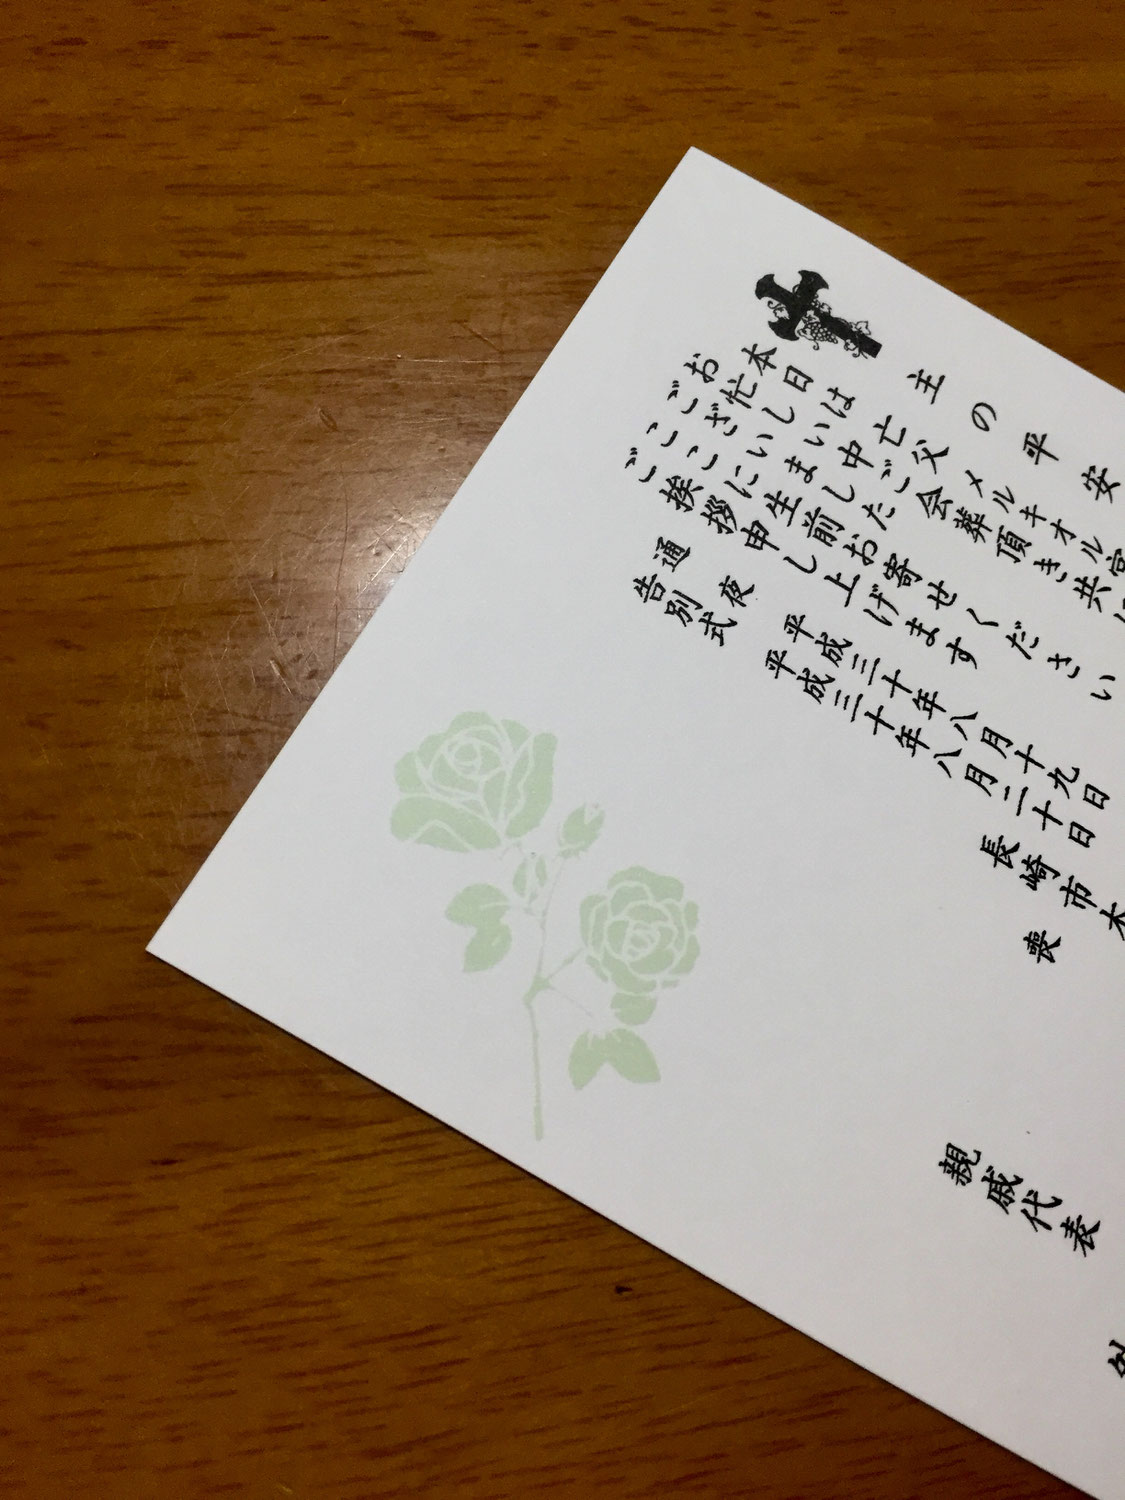 主の平安
本日は亡父メルキオル
お忙しい中ご会葬頂き共に
ございました
ここに生前お寄せください
ご挨拶申し上げます
通夜 平成三十年八月十九日
告別式 平成三十年八月二十日
長崎市木
喪
親戚代表
外